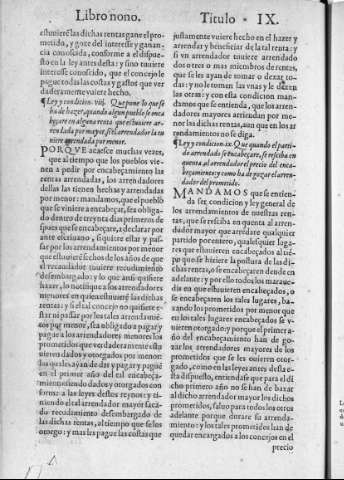 Libro nono.
Titulo · IX.
estuuiere las dichas rentas gane el pro-
metido, y goze del interesse y ganan-
cia conosida, conforme a el dispue-
sto en la ley antes desta: y sino tuuiere
interesse conoscido, que el concejo le
pague todas las costas y gastos que ver
daderamente vuiere hecho.
¶Ley y condicion. viij. Que pone lo que se
ha de hazer, quando algun pueblo se enca
beçare en alguna renta que estuuiere ar-
rendada por mayor, si el arrendador la tu
uiere arrendada por menor.
PORQVE acaesce muchas vezes,
que al tiempo que los pueblos vienen
a pedir por encabeçamiento las
rentas arrendadas, los arrendadores
dellas las tienen hechas y arrendadas
por menor: mandamos, que el pueblo
que se viniere a encabeçar, sea obliga-
do dentro de treynta dias primeros de
spues que se encabeçare, a declarar por
ante escriuano, si quiere estar y pas-
sar por los arrendamientos por menor
que estuuiere hechos de los años de que
el recaudador tuuiere recudimiento
desembargado: y lo que ansi quisiere
hazer, lo notifique a los arrendadores
menores en quien estuuieren las dichas
rentas: y si el tal concejo no quisiere e-
star ni passar por los tales arrendamien-
tos por menor, sea obligado a pagar y
pague a los arrendadores menores los
prometidos que verdaderamente estu-
uieren dados y otorgados por menor:
los quales ayan de dar y pagar y paguen
en el primer año del tal encabeça-
miento siendo dados y otorgados con-
forme a las leyes destos reynos: y te-
niendo el tal arrendador mayor saca-
do recudimiento desembargado de
las dichas rentas, al tiempo que se los
otorgo: y mas las pague las costas que
justamente vuiere hecho en el hazer y
arrendar y beneficiar de la tal renta: y
si vn arrendador tuuiere arrendado
dos o tres o mas miembros de rentas,
que se les ayan de tomar o dexar to-
das: y no le tomen las vnas y le dexen
las otras: y con esta condicion man-
damos que se entienda, que los arren-
dadores mayores arriendan por me-
nor las dichas rentas, aun que en los ar
rendamientos no se diga.
¶Ley y condicion. ix. Que quando el parti-
do arrendado se encabeçare, se resciba en
cuenta al arrendador el precio del enca-
beçamiento: y como ha de gozar el arren-
dador del prometido.
MANDAMOS que se entien-
da ser condicion y ley general de
los arrendamientos de nuestras ren-
tas, que se resciba en cuenta al arren-
dador mayor que arrendare qualquier
partido por entero, qualesquier luga-
res que estuuieren encabeçados al tie-
po que se hiziere la postura de las di-
chas rentas, o se encabeçaren dende en
adelante: y por ello todos los maraue-
dis en que estuuieren encabeçados, o
se encabeçaren los tales lugares, ba-
xando los prometidos por menor que
en los tales lugares encabeçados se v-
uieren otorgado: y porque el primer a-
ño del encabeçamiento han de go-
zar los arrendadores mayores de los
prometidos que se les ouieren otor-
gado, como en las leyes antes desta e-
sta dispuesto, entiendase que para el di
cho primero año no se han de baxar
al dicho arrendador mayor los dichos
prometidos, saluo para todos los otros
adelante porque durare su arrenda-
miento: y los tales prometidos han de
quedar encargados a los concejos en el
precio